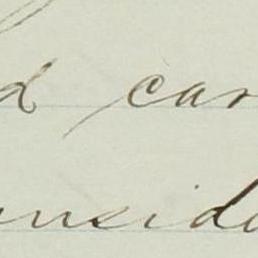 d car
onside